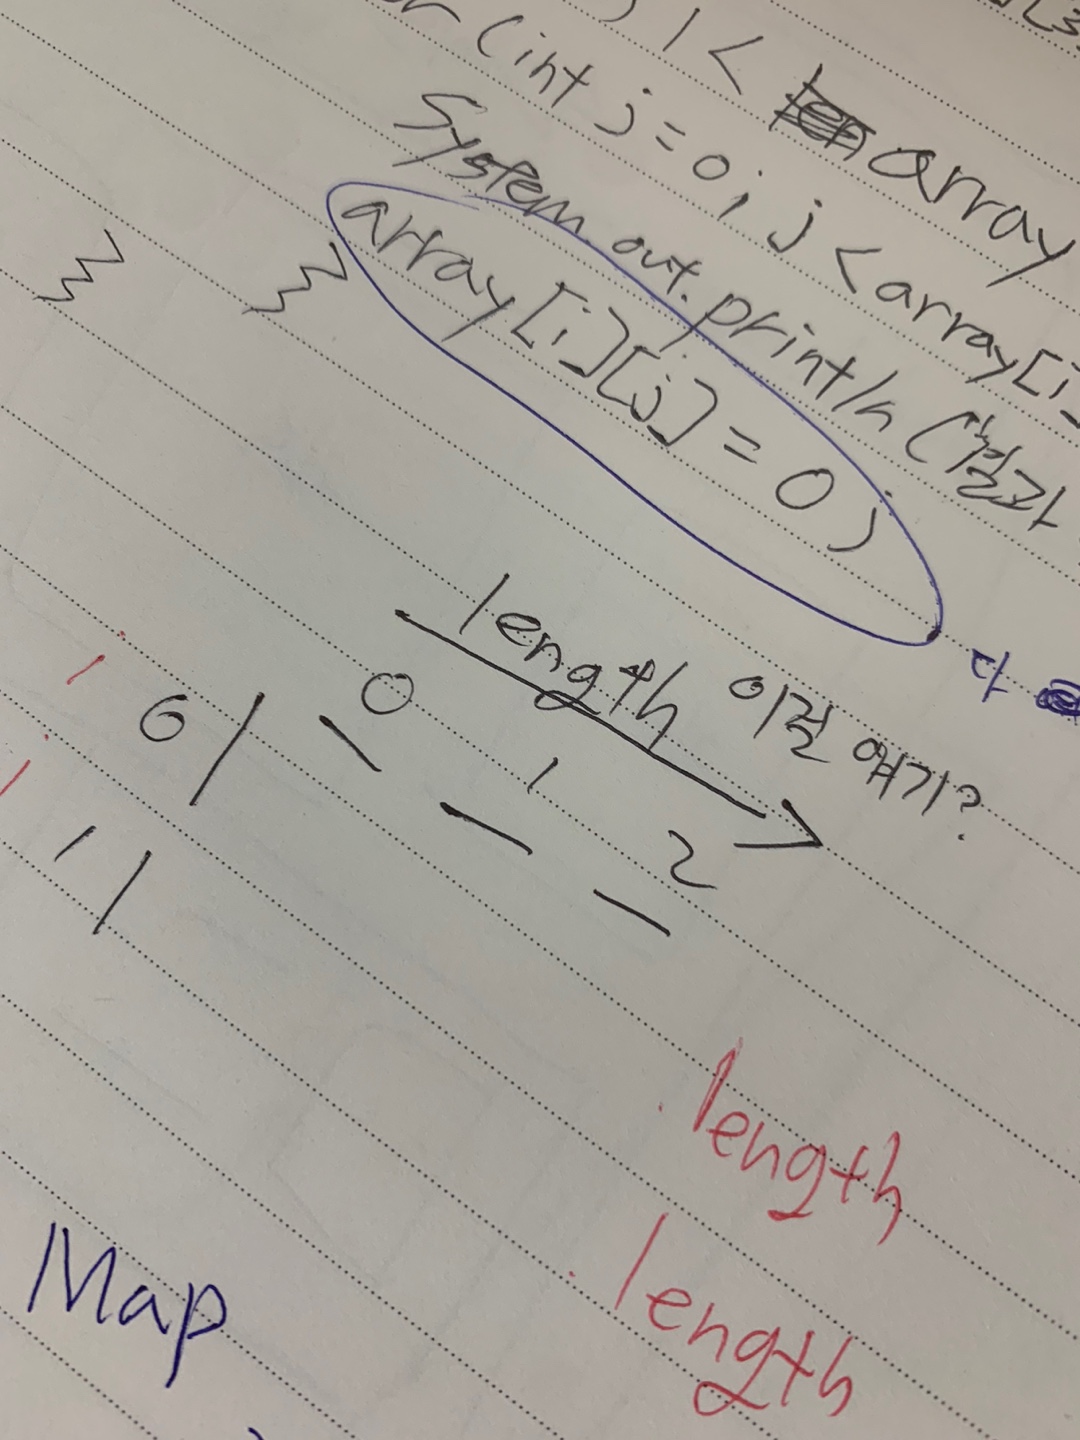 i < array
(int j = 0; j < array[i]
System.out.println("결과
array[i][j] = 0;
} }
length 이걸 얘기?
0 / 0 1 2
1 /
.length
.length
Map